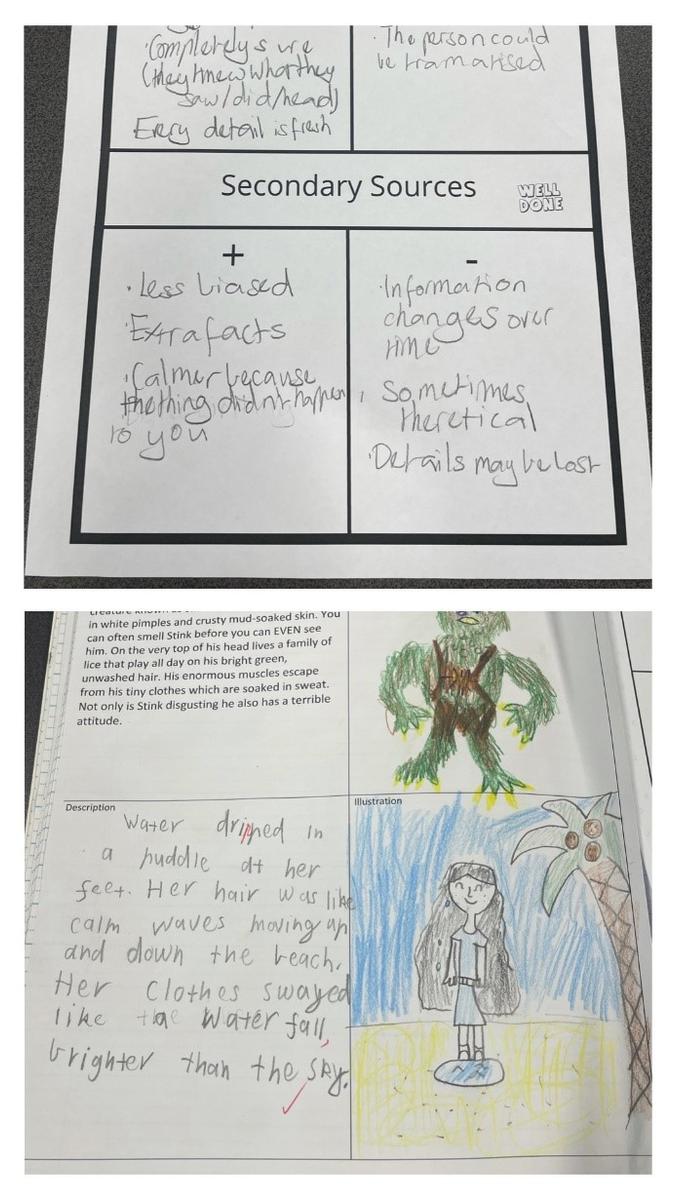 Completely sure
(they knew what they
saw/did/head)
Every detail is fresh
· The person could
be tramarised
Secondary Sources
WELL
DONE
+
· Less biased
· Extra facts
· Calmer because
the thing didn't happen
to you
-
· Information
changes over
time
· Sometimes
theretical
· Details may be lost
in white pimples and crusty mud-soaked skin. You
can often smell Stink before you can EVEN see
him. On the very top of his head lives a family of
lice that play all day on his bright green,
unwashed hair. His enormous muscles escape
from his tiny clothes which are soaked in sweat.
Not only is Stink disgusting he also has a terrible
attitude.
Description
Water dripped in
a puddle at her
feet. Her hair was like
calm waves moving up
and down the beach.
Her clothes swayed
like the waterfall,
brighter than the sky.
Illustration